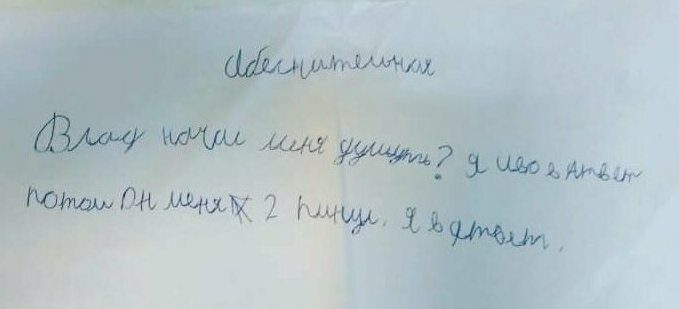 Абеснительная
Влад начал меня душить? я иво в ятвет
потом он меня 2 пинул. я в ятвет.